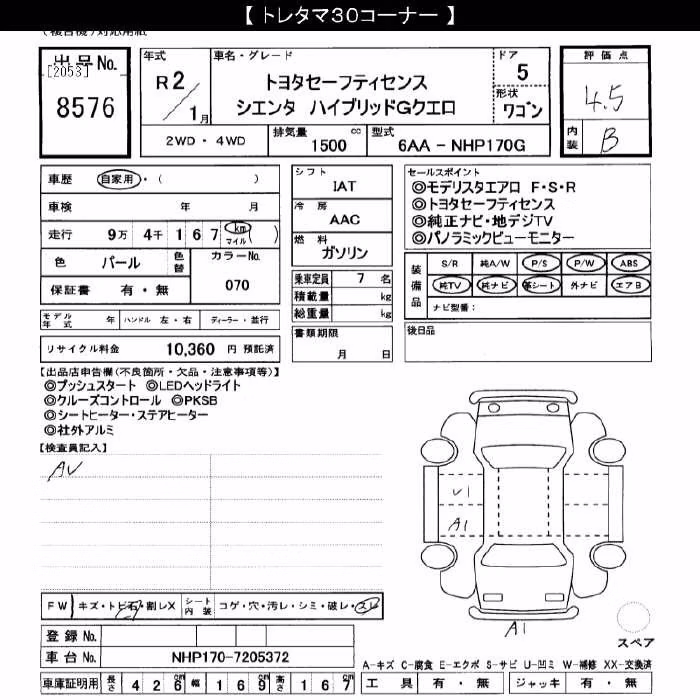 【 トレタマ30コーナー 】
(複合名)対応用紙
出品No.
[2053]
8576
年式
R2/1月
車名・グレード
トヨタセーフティセンス
シエンタ ハイブリッドGクエロ
ドア
5
形状
ワゴン
評価点
4.5
内装
B
2WD・4WD
排気量
1500 cc
型式
6AA - NHP170G
車歴 自家用・( )
車検 年 月
走行 9万 4千 1 6 7 km マイル )
色 パール 色替
カラーNo.
070
保証書 有・無
シフト
IAT
冷房
AAC
燃料
ガソリン
乗車定員 7 名
積載量 kg
総重量 kg
書類期限
月 日
セールスポイント
◎モデリスタエアロ F・S・R
◎トヨタセーフティセンス
◎純正ナビ・地デジTV
◎パノラミックビューモニター
装備品
S/R 純A/W P/S P/W ABS
純TV 純ナビ 革シート 外ナビ エアB
ナビ型番:
モデル年式 年 ハンドル 左・右 ディーラー・並行
後日品
リサイクル料金 10,360 円 預託済
【出品店申告欄(不良箇所・欠品・注意事項等)】
◎プッシュスタート ◎LEDヘッドライト
◎クルーズコントロール ◎PKSB
◎シートヒーター・ステアヒーター
◎社外アルミ
【検査員記入】
AV
U1
A1
A1
スペア
FW キズ・トビ石・割レX シート内装 コゲ・穴・汚レ・シミ・破レ・スレ
登録No.
車台No. NHP170-7205372
A-キズ C-腐食 E-エクボ S-サビ U-凹ミ W-補修 XX-交換済
車庫証明用 長さ 4 2 6 cm 幅 1 6 9 cm 高さ 1 6 7 cm
工具 有・無 ジャッキ 有・無